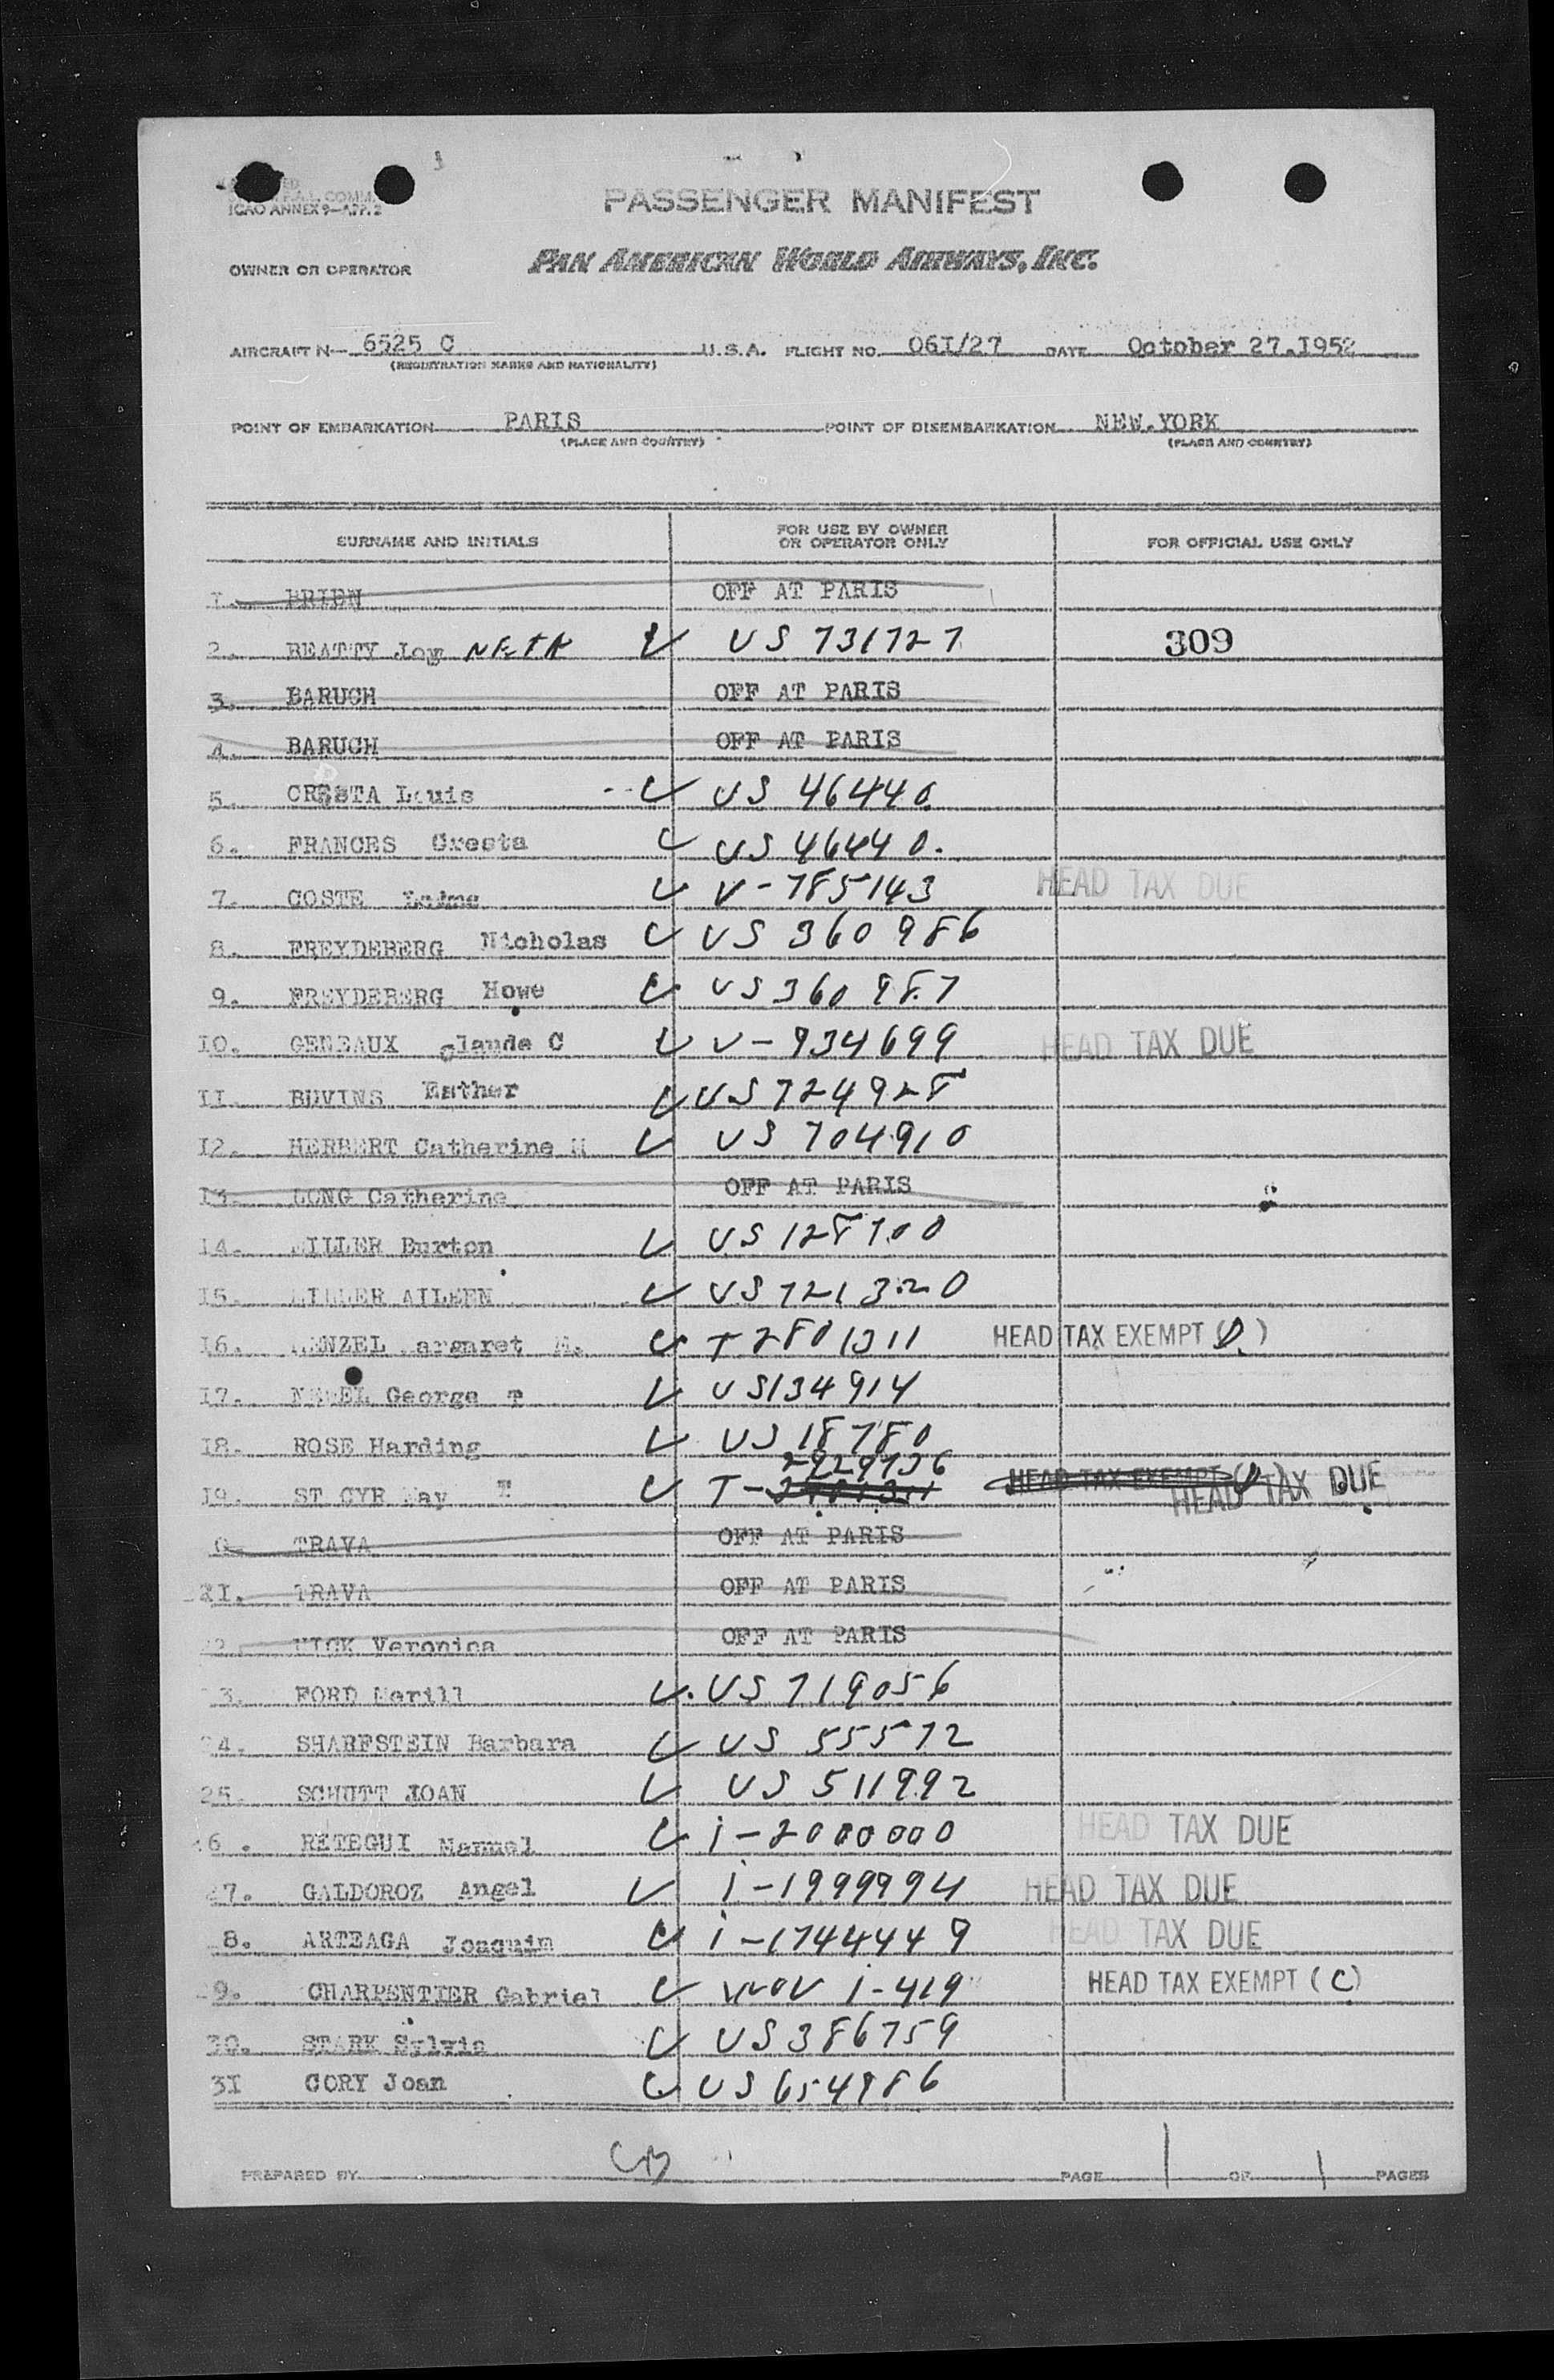 ICAO ANNEX 9-APP. 2
PASSENGER MANIFEST
OWNER OR OPERATOR PAN AMERICAN WORLD AIRWAYS, INC.
AIRCRAFT N- 6525 C U.S.A. FLIGHT NO. 06I/27 DATE October 27.I952
(REGISTRATION MARKS AND NATIONALITY)
POINT OF EMBARKATION PARIS POINT OF DISEMBARKATION NEW.YORK
(PLACE AND COUNTRY) (PLACE AND COUNTRY)
SURNAME AND INITIALS FOR USE BY OWNER OR OPERATOR ONLY FOR OFFICIAL USE ONLY
I. BRIEN OFF AT PARIS
2. BEATTY Joy US 731727 309
3. BARUCH OFF AT PARIS
4. BARUCH OFF AT PARIS
5. CRESTA Louis US 46440
6. FRANCES Cresta US 46440.
7. COSTE V-785143 HEAD TAX DUE
8. FREYDEBERG Nicholas US 360986
9. FREYDEBERG Howe US 360987
I0. GENEAUX Claude C V-934699 HEAD TAX DUE
II. BUVINS Esther US 724928
I2. HERBERT Catherine M US 704910
I3. LONG Catherine OFF AT PARIS
I4. MILLER Burton US 128700
I5. MILLER AILEEN US 721320
I6. MENZEL Margaret M. T 2801311 HEAD TAX EXEMPT (D.)
I7. NEWEL George T US 134914
I8. ROSE Harding US 18780
2929736
I9. ST CYR May T- HEAD TAX EXEMPT HEAD TAX DUE
0. TRAVA OFF AT PARIS
2I. TRAVA OFF AT PARIS
22. Veronica OFF AT PARIS
3. FORD Merill US 719056
24. SHARFSTEIN Barbara US 55572
25. SCHUTT JOAN US 511992
26. RETEGUI Manuel i-2000000 HEAD TAX DUE
27. GALDOROZ Angel i-1999994 HEAD TAX DUE
8. ARTEAGA Joaquim i-1744449 HEAD TAX DUE
29. CHARPENTIER Gabriel I-419 HEAD TAX EXEMPT (C)
30. STARK Sylvia US 386759
3I CORY Joan US 654986
PREPARED BY CB PAGE 1 OF 1 PAGES